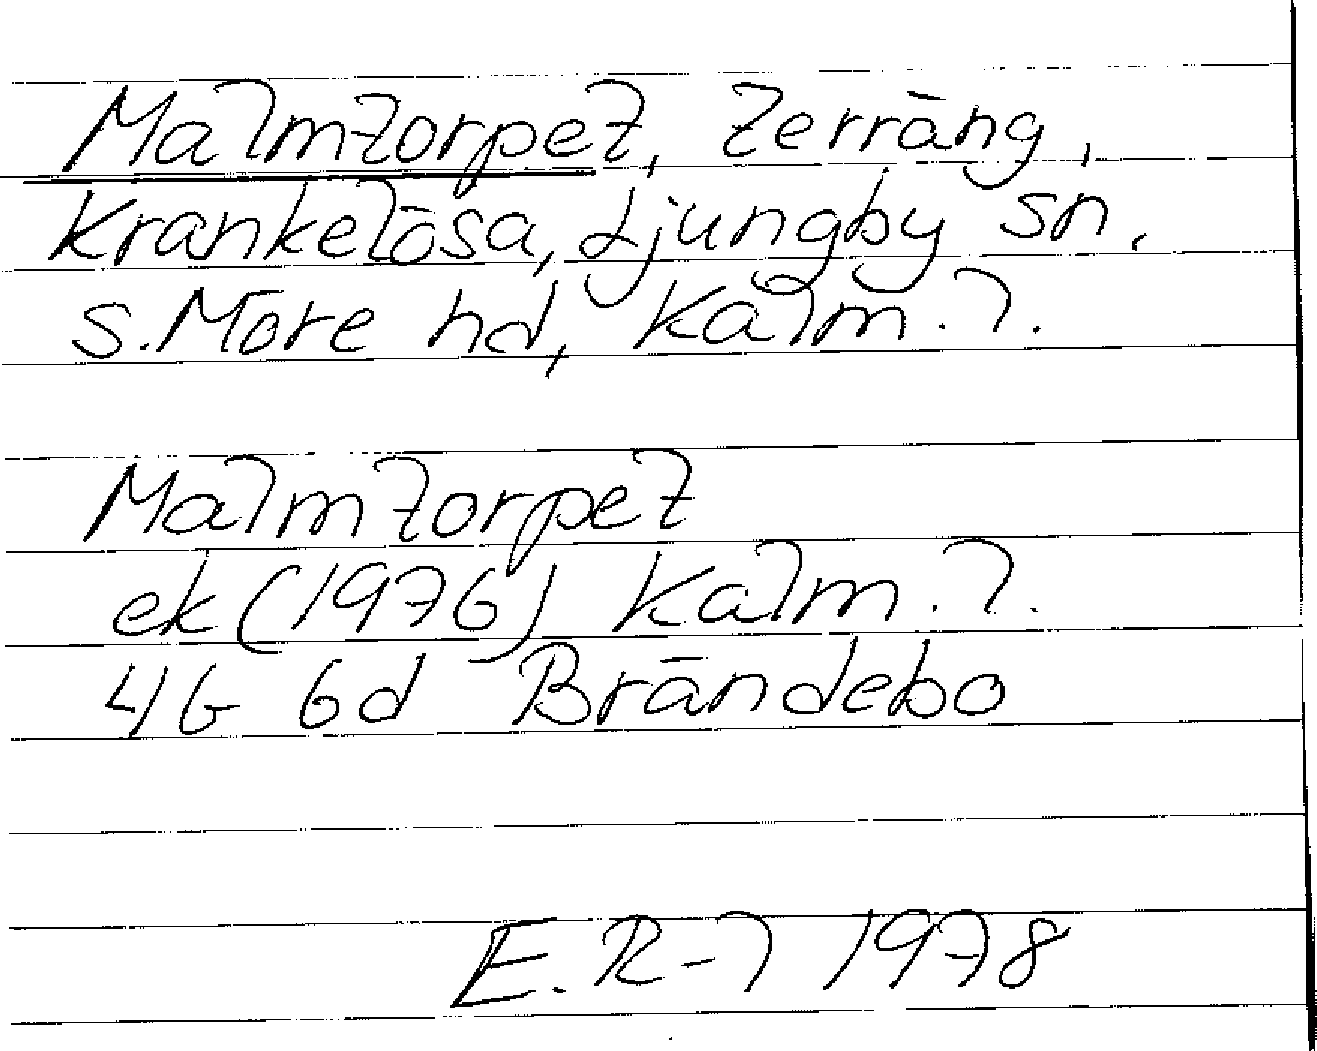 Malmtorpet, terräng,
Krankelösa, Ljungby sn.
S. Möre hd, Kalm. l.
Malmtorpet
ek (1976) Kalm. l.
4G 6d Brändebo
E. R-l 1978